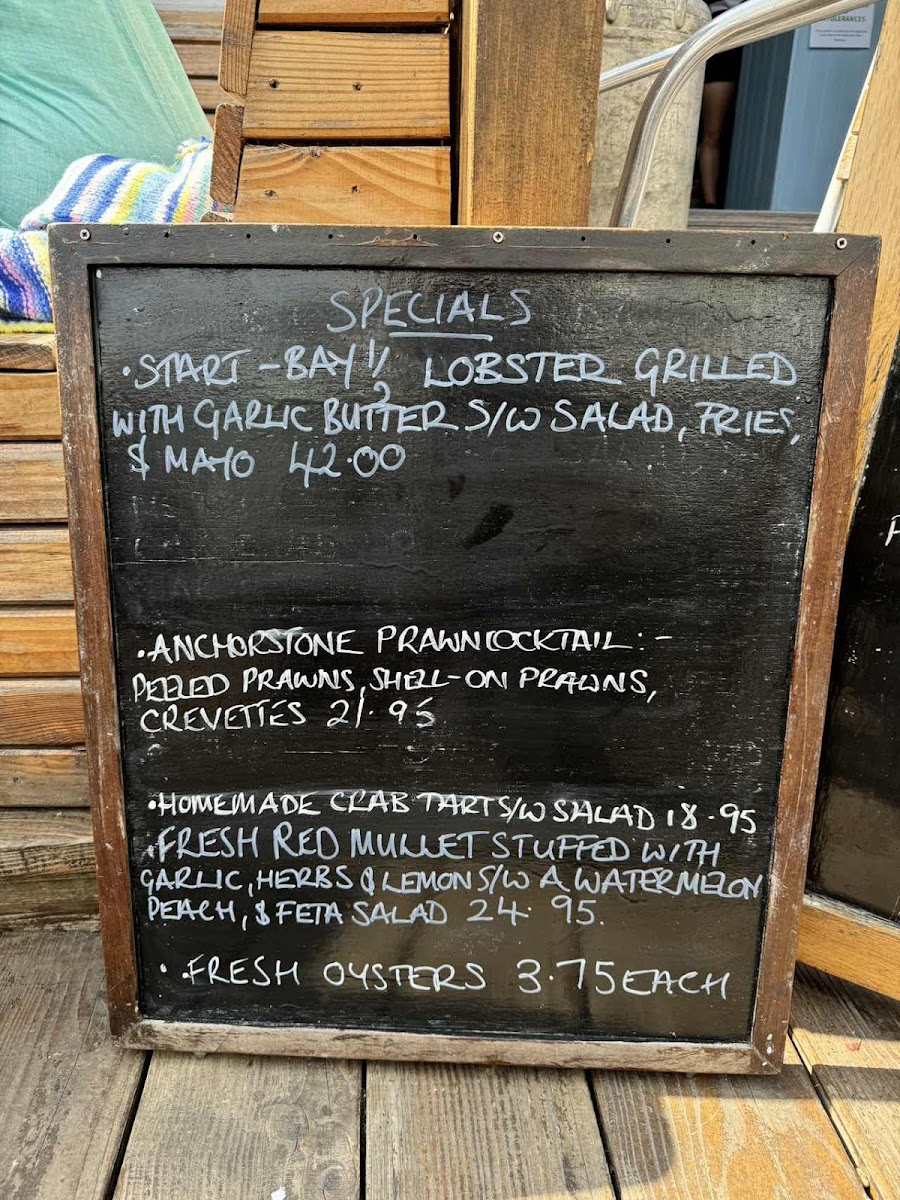 TOLERANCES
SPECIALS
• START-BAY 1/2 LOBSTER GRILLED
WITH GARLIC BUTTER S/W SALAD, FRIES,
& MAYO 42.00
• ANCHORSTONE PRAWN COCKTAIL:-
PEELED PRAWNS, SHELL-ON PRAWNS,
CREVETTES 21.95
• HOMEMADE CRAB TART S/W SALAD 18.95
• FRESH RED MULLET STUFFED WITH
GARLIC, HERBS & LEMON S/W A WATERMELON
PEACH, & FETA SALAD 24.95.
• • FRESH OYSTERS 3.75 EACH